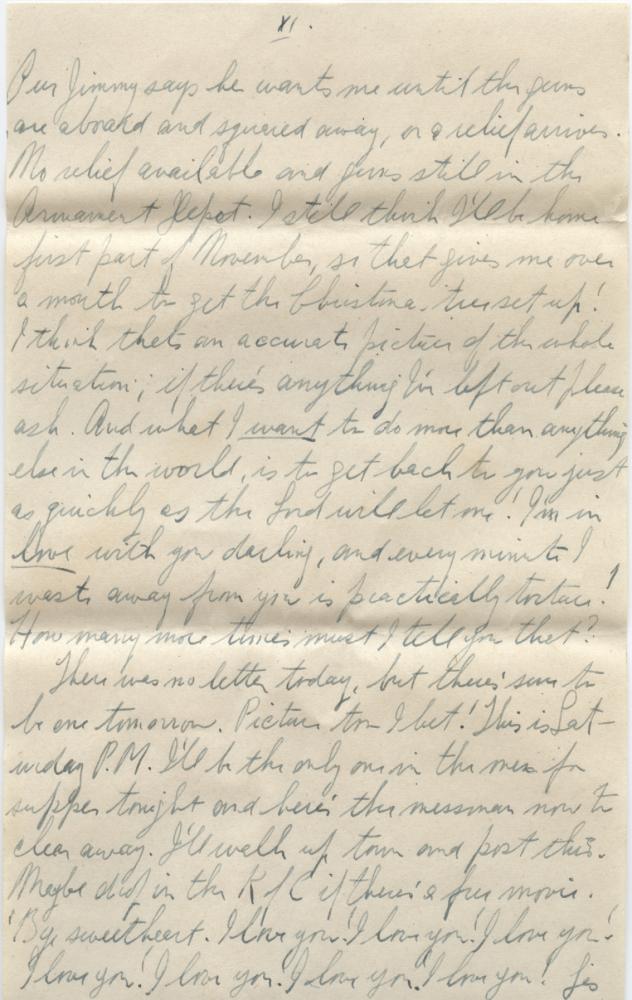 XI.
Our Jimmy says he wants me until the guns
are aboard and squared away, or a relief arrives.
No relief available and guns still in the
Armament Depot. I still think I'll be home
first part of November, so that gives me over
a month to get the Christmas tree set up!
I think that's an accurate picture of the whole
situation; if there's anything I've left out please
ask. And what I want to do more than anything
else in the world, is to get back to you just
as quickly as the Lord will let me! I'm in
love with you darling, and every minute I
waste away from you is practically torture!
How many more times must I tell you that?
There was no letter today, but there's sure to
be one tomorrow. Picture too I bet! This is Sat-
urday P.M. I'll be the only one in the mess for
supper tonight and here's the messman now to
clear away. I'll walk up town and post this.
Maybe drop in the K of C if there's a free movie.
'Bye sweetheart. I love you! I love you! I love you!
I love you! I love you! I love you! I love you!